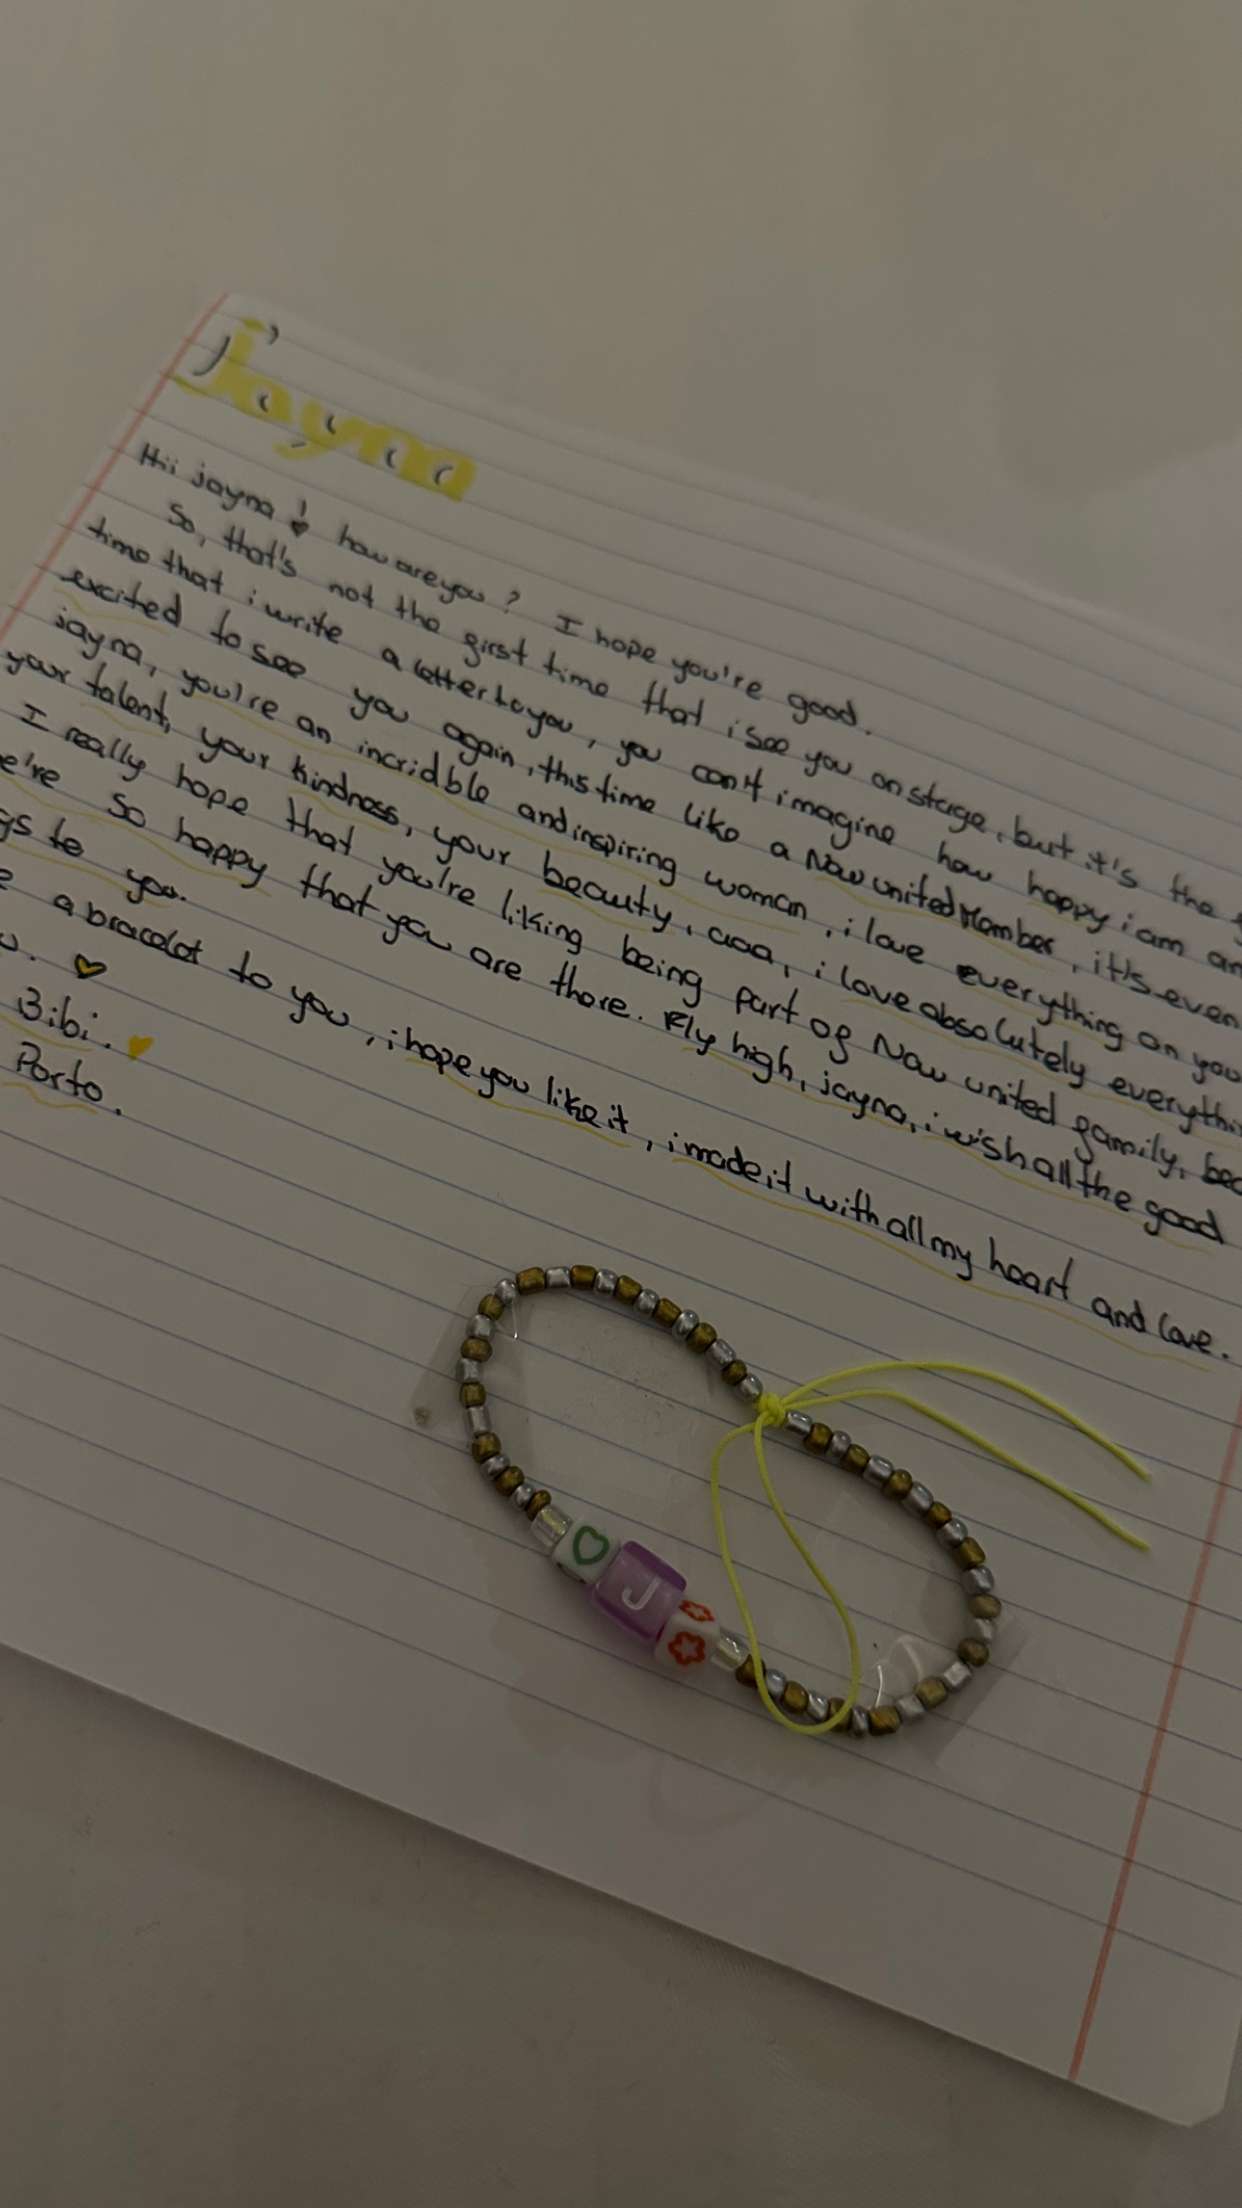 jayna
Hii jayna! how are you? I hope you're good.
So, that's not the first time that i see you on stage, but it's the
time that i write a letter to you, you can't imagine how happy i am an
excited to see you again, this time like a Now united Member, it's even
jayna, you're an incridble and inspiring woman, i love everything on you
your talent, your kindness, your beauty, aaa, i love absolutely everythi
I really hope that you're liking being part of Now united family, bec
e're so happy that you are there. Fly high, jayna, i wish all the good
gs to you.
a bracelet to you, i hope you like it, i made it with all my heart and love.
Bibi.
Porto.
J